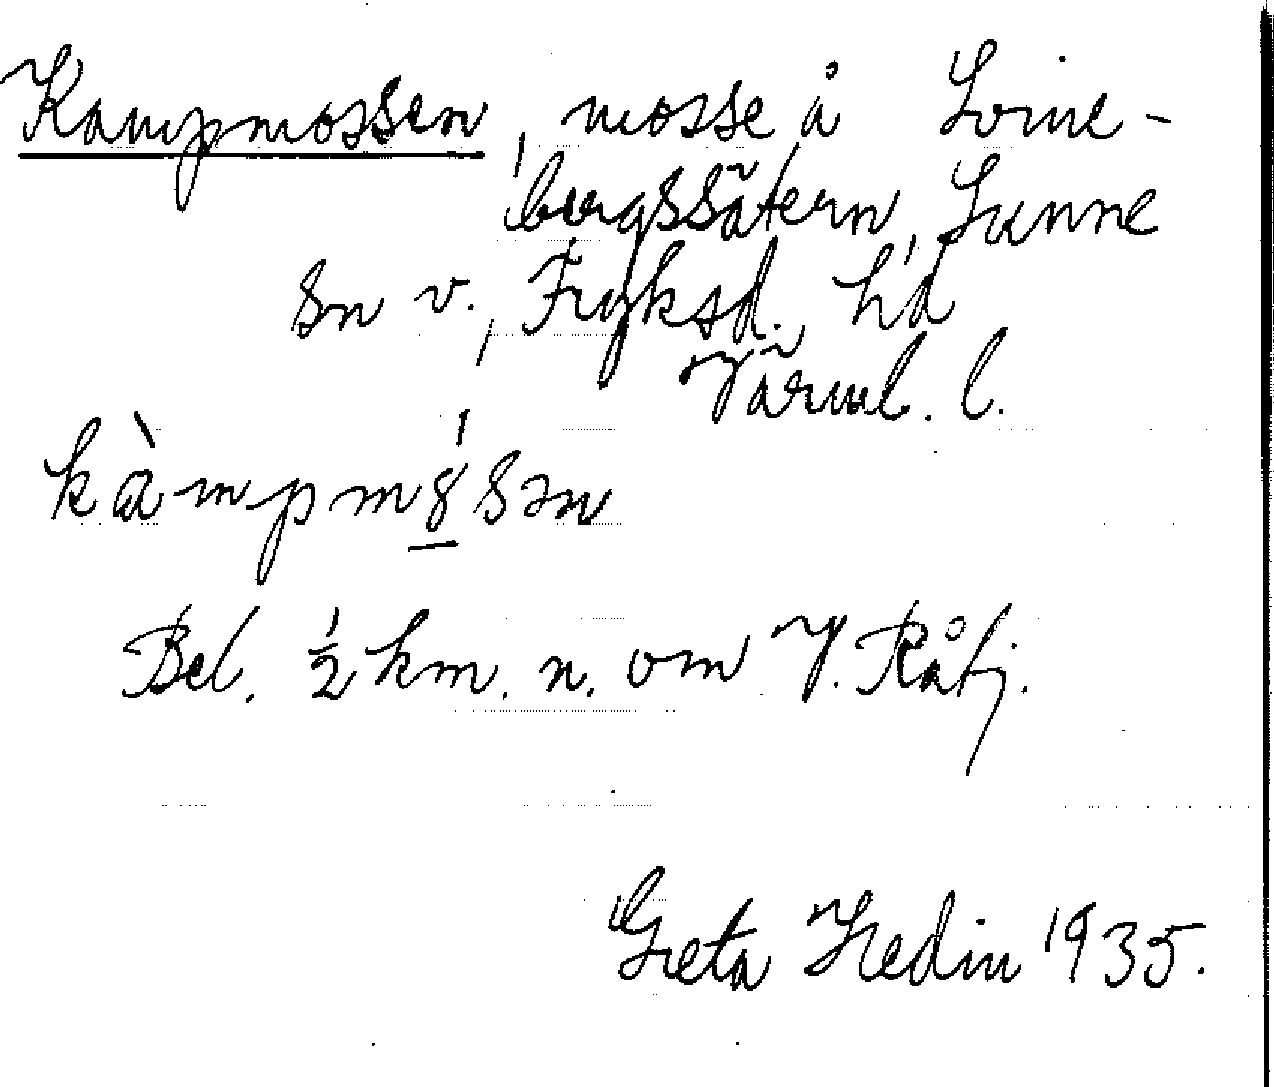 Kampmossen, mosse å Loine-
bergssätern, Sunne
sn v., Fryksd. h'd
Värml. l.
kàmpmósən
Bel. ½ km. n. om Y. Råtj.
Greta Hedin 1935.